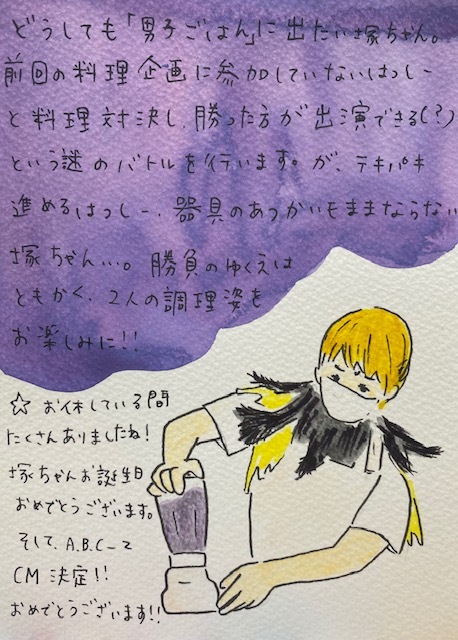 どうしても「男子ごはん」に出たい塚ちゃん。
前回の料理企画に参加していないはっしー
と料理対決し、勝った方が出演できる(?)
という謎のバトルを行います。が、テキパキ
進めるはっしー、器具のあつかいもままならない
塚ちゃん…。勝負のゆくえは
ともかく、2人の調理姿を
お楽しみに!!
☆ お休している間
たくさんありましたね!
塚ちゃんお誕生日
おめでとうございます。
そして、A.B.C-Z
CM 決定!!
おめでとうございます!!